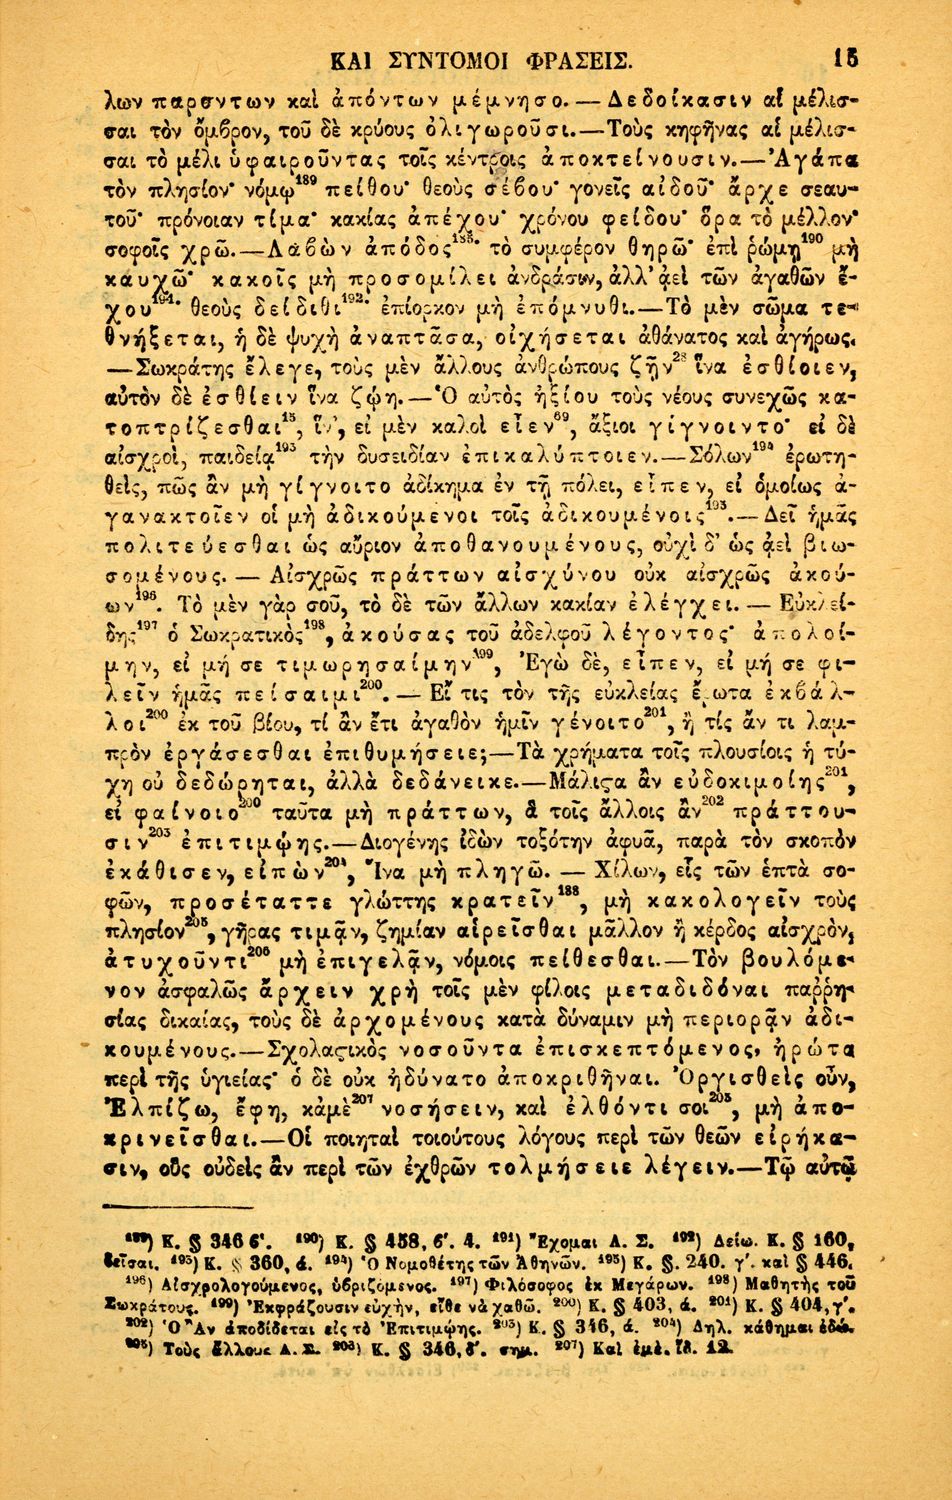 ΚΑΙ ΣΥΝΤΟΜΟΙ ΦΡΑΣΕΙΣ. 15
λων παρόντων καὶ ἀπόντων μέμνησο. — Δεδοίκασιν αἱ μέλισ-
σαι τὸν ὄμβρον, τοῦ δὲ κρύους ὀλιγωροῦσι.—Τοὺς κηφῆνας αἱ μέλισ-
σαι τὸ μέλι ὑφαιροῦντας τοῖς κέντροις ἀποκτείνουσιν.—Ἀγάπα
τὸν πλησίον· νόμῳ¹⁸⁹ πείθου· θεοὺς σέβου· γονεῖς αἰδοῦ· ἄρχε σεαυ-
τοῦ· πρόνοιαν τίμα· κακίας ἀπέχου· χρόνου φείδου· ὅρα τὸ μέλλον·
σοφοῖς χρῶ.—Λαβὼν ἀπόδος¹⁸⁸· τὸ συμφέρον θηρῶ· ἐπὶ ῥώμῃ¹⁹⁰ μὴ
καυχῶ· κακοῖς μὴ προσομίλει ἀνδράσιν, ἀλλ' ἀεὶ τῶν ἀγαθῶν ἔ-
χου¹⁹¹· θεοὺς δείδιθι¹⁹²· ἐπίορκον μὴ ἐπόμνυθι.—Τὸ μὲν σῶμα τε-
θνήξεται, ἡ δὲ ψυχὴ ἀναπτᾶσα, οἰχήσεται ἀθάνατος καὶ ἀγήρως.
—Σωκράτης ἔλεγε, τοὺς μὲν ἄλλους ἀνθρώπους ζῆν²⁸ ἵνα ἐσθίοιεν,
αὐτὸν δὲ ἐσθίειν ἵνα ζῴη.—Ὁ αὐτὸς ἠξίου τοὺς νέους συνεχῶς κα-
τοπτρίζεσθαι¹⁵, ἵν', εἰ μὲν καλοὶ εἶεν⁶⁹, ἄξιοι γίγνοιντο· εἰ δὲ
αἰσχροὶ, παιδείᾳ¹⁹³ τὴν δυσειδίαν ἐπικαλύπτοιεν.—Σόλων¹⁹⁴ ἐρωτη-
θεὶς, πῶς ἂν μὴ γίγνοιτο ἀδίκημα ἐν τῇ πόλει, εἶπεν, εἰ ὁμοίως ἀ-
γανακτοῖεν οἱ μὴ ἀδικούμενοι τοῖς ἀδικουμένοις¹⁹⁵.—Δεῖ ἡμᾶς
πολιτεύεσθαι ὡς αὔριον ἀποθανουμένους, οὐχὶ δ' ὡς ἀεὶ βιω-
σομένους. — Αἰσχρῶς πράττων αἰσχύνου οὐκ αἰσχρῶς ἀκού-
ων¹⁹⁶. Τὸ μὲν γὰρ σοῦ, τὸ δὲ τῶν ἄλλων κακίαν ἐλέγχει. — Εὐκλεί-
δης¹⁹⁷ ὁ Σωκρατικὸς¹⁹⁸, ἀκούσας τοῦ ἀδελφοῦ λέγοντος· ἀπολοί-
μην, εἰ μή σε τιμωρησαίμην¹⁹⁹, Ἐγὼ δὲ, εἶπεν, εἰ μή σε φι-
λεῖν ἡμᾶς πείσαιμι²⁰⁰. — Εἴ τις τὸν τῆς εὐκλείας ἔρωτα ἐκβάλ-
λοι²⁰⁰ ἐκ τοῦ βίου, τί ἂν ἔτι ἀγαθὸν ἡμῖν γένοιτο²⁰¹, ἢ τίς ἄν τι λαμ-
πρὸν ἐργάσεσθαι ἐπιθυμήσειε;—Τὰ χρήματα τοῖς πλουσίοις ἡ τύ-
χη οὐ δεδώρηται, ἀλλὰ δεδάνεικε.—Μάλιϛα ἂν εὐδοκιμοίης²⁰¹,
εἰ φαίνοιο²⁰⁰ ταῦτα μὴ πράττων, ἃ τοῖς ἄλλοις ἂν²⁰² πράττου-
σιν²⁰³ ἐπιτιμῴης.—Διογένης ἰδὼν τοξότην ἀφυᾶ, παρὰ τὸν σκοπὸν
ἐκάθισεν, εἰπὼν²⁰⁴, Ἵνα μὴ πληγῶ. — Χίλων, εἷς τῶν ἑπτὰ σο-
φῶν, προσέταττε γλώττης κρατεῖν¹⁸⁸, μὴ κακολογεῖν τοὺς
πλησίον²⁰⁵, γῆρας τιμᾷν, ζημίαν αἱρεῖσθαι μᾶλλον ἢ κέρδος αἰσχρὸν,
ἀτυχοῦντι²⁰⁶ μὴ ἐπιγελᾷν, νόμοις πείθεσθαι.—Τὸν βουλόμε-
νον ἀσφαλῶς ἄρχειν χρὴ τοῖς μὲν φίλοις μεταδιδόναι παῤῥη-
σίας δικαίας, τοὺς δὲ ἀρχομένους κατὰ δύναμιν μὴ περιορᾷν ἀδι-
κουμένους.—Σχολαϛικὸς νοσοῦντα ἐπισκεπτόμενος, ἠρώτα
περὶ τῆς ὑγιείας· ὁ δὲ οὐκ ἠδύνατο ἀποκριθῆναι. Ὀργισθεὶς οὖν,
Ἐλπίζω, ἔφη, κἀμὲ²⁰⁷ νοσήσειν, καὶ ἐλθόντι σοι²⁰⁵, μὴ ἀπο-
κρινεῖσθαι.—Οἱ ποιηταὶ τοιούτους λόγους περὶ τῶν θεῶν εἰρήκα-
σιν, οὓς οὐδεὶς ἂν περὶ τῶν ἐχθρῶν τολμήσειε λέγειν.—Τῷ αὐτῷ
¹⁸⁹) Κ. § 346 β'. ¹⁹⁰) Κ. § 458, β'. 4. ¹⁹¹) Ἔχομαι Λ. Σ. ¹⁹²) Δείω. Κ. § 160,
δεῖσαι. ¹⁹³) Κ. § 360, ά. ¹⁹⁴) Ὁ Νομοθέτης τῶν Ἀθηνῶν. ¹⁹⁵) Κ. §. 240. γ'. καὶ § 446.
¹⁹⁶) Αἰσχρολογούμενος, ὑβριζόμενος. ¹⁹⁷) Φιλόσοφος ἐκ Μεγάρων. ¹⁹⁸) Μαθητὴς τοῦ
Σωκράτους. ¹⁹⁹) Ἐκφράζουσιν εὐχὴν, εἴθε νὰ χαθῶ. ²⁰⁰) Κ. § 403, ά. ²⁰¹) Κ. § 404, γ'.
²⁰²) Ὁ Ἂν ἀποδίδεται εἰς τὸ Ἐπιτιμῴης. ²⁰³) Κ. § 346, ά. ²⁰⁴) Δηλ. κάθημαι ἐδῶ.
²⁰⁵) Τοὺς ἄλλους Λ. Σ. ²⁰⁶) Κ. § 346, δ'. σημ. ²⁰⁷) Καὶ ἐμὲ. ἴδ. 12.